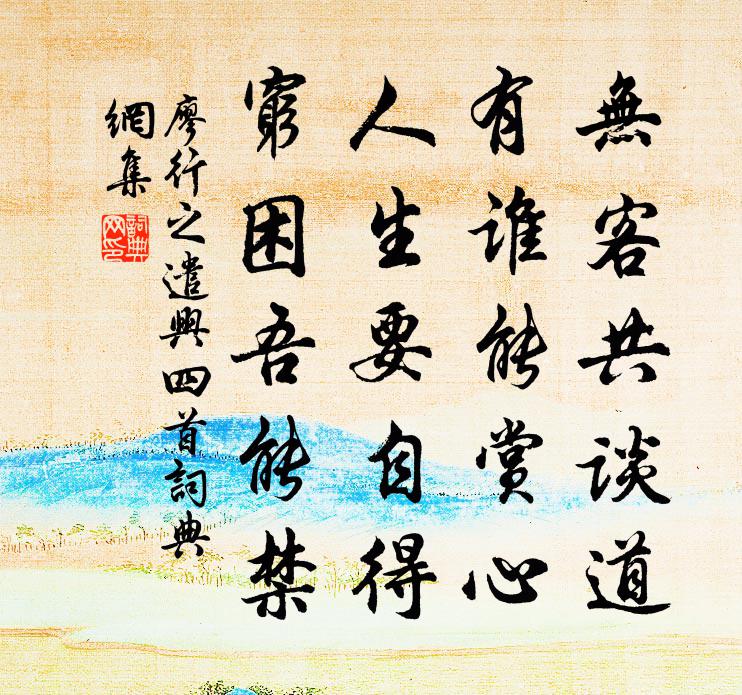 無客共談道
有誰能賞心
人生要自得
窮困吾能禁
廖行之遣興四首詞典
網集
詞典
网印